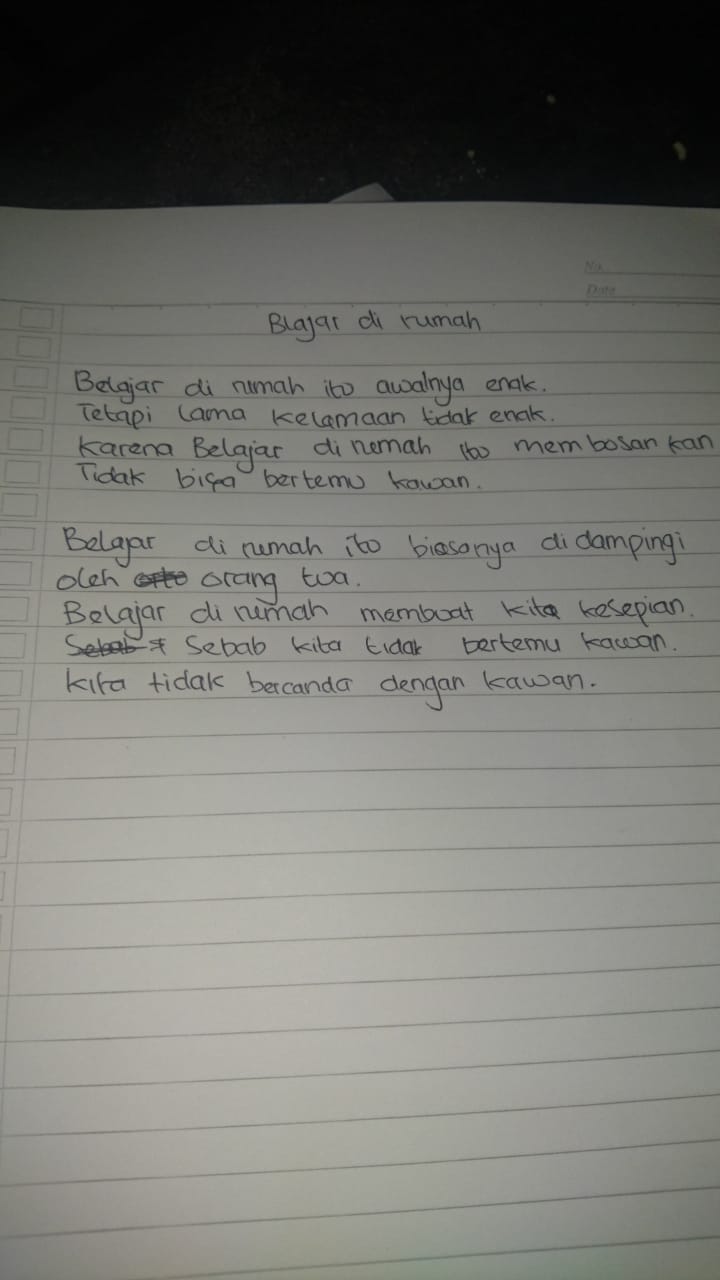 No.
Date
Blajar di rumah
Belajar di rumah itu awalnya enak.
Tetapi lama kelamaan tidak enak.
Karena Belajar di rumah itu membosan kan
Tidak bisa bertemu kawan.
Belajar di rumah itu biasanya di dampingi
oleh orang tua.
Belajar di rumah membuat kita kesepian.
Sebab Sebab kita tidak bertemu kawan.
kita tidak bercanda dengan kawan.